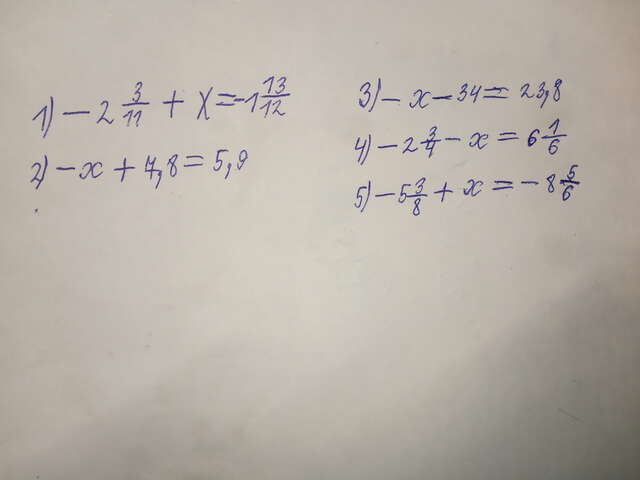 1) - 2 3/11 + x = -1 13/12
2) - x + 7,8 = 5,9
3) - x - 34 = 23,8
4) - 2 3/4 - x = 6 1/6
5) - 5 3/8 + x = - 8 5/6